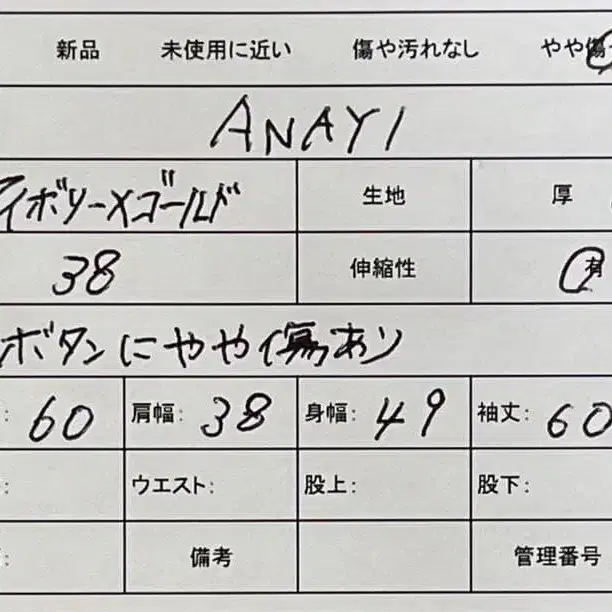 新品 未使用に近い 傷や汚れなし やや傷
ANAYI
アイボリー×ゴールド 生地 厚
38 伸縮性 有
ボタンにやや傷あり
: 60 肩幅: 38 身幅: 49 袖丈: 60
: ウエスト: 股上: 股下:
: 備考 管理番号